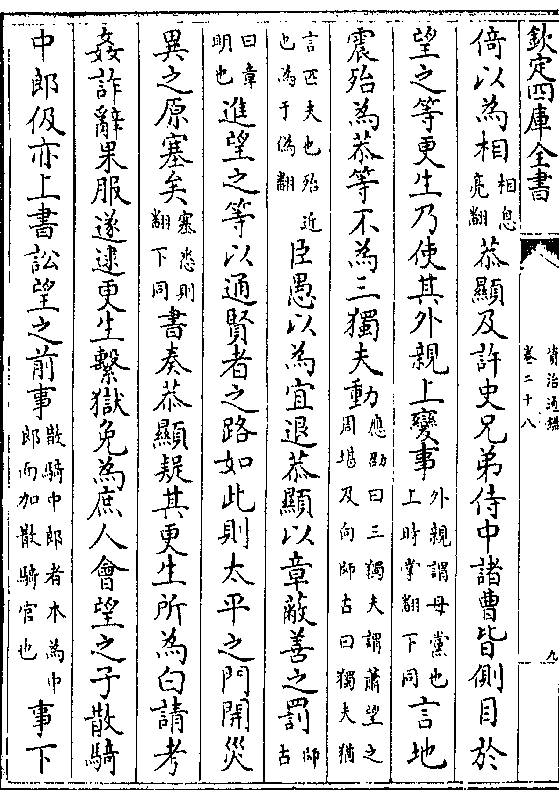 欽定四庫全書
資治通鑑
卷二十八
九
倚以為相相息亮翻恭顯及許史兄弟侍中諸曹皆側目於
望之等更生乃使其外親上變事外親謂母黨也上時掌翻下同言地
震殆為恭等不為三獨夫動應劭曰三獨夫謂蕭望之周堪及向師古曰獨夫猶
言匹夫也殆近也為于偽翻臣愚以為宜退恭顯以章蔽善之罰師古
曰章明也進望之等以通賢者之路如此則太平之門開災
異之原塞矣塞悉則翻下同書奏恭顯疑其更生所為白請考
姦詐辭果服遂逮更生繫獄免為庶人會望之子散騎
中郎伋亦上書訟望之前事散騎中郎者本為中郎而加散騎官也事下